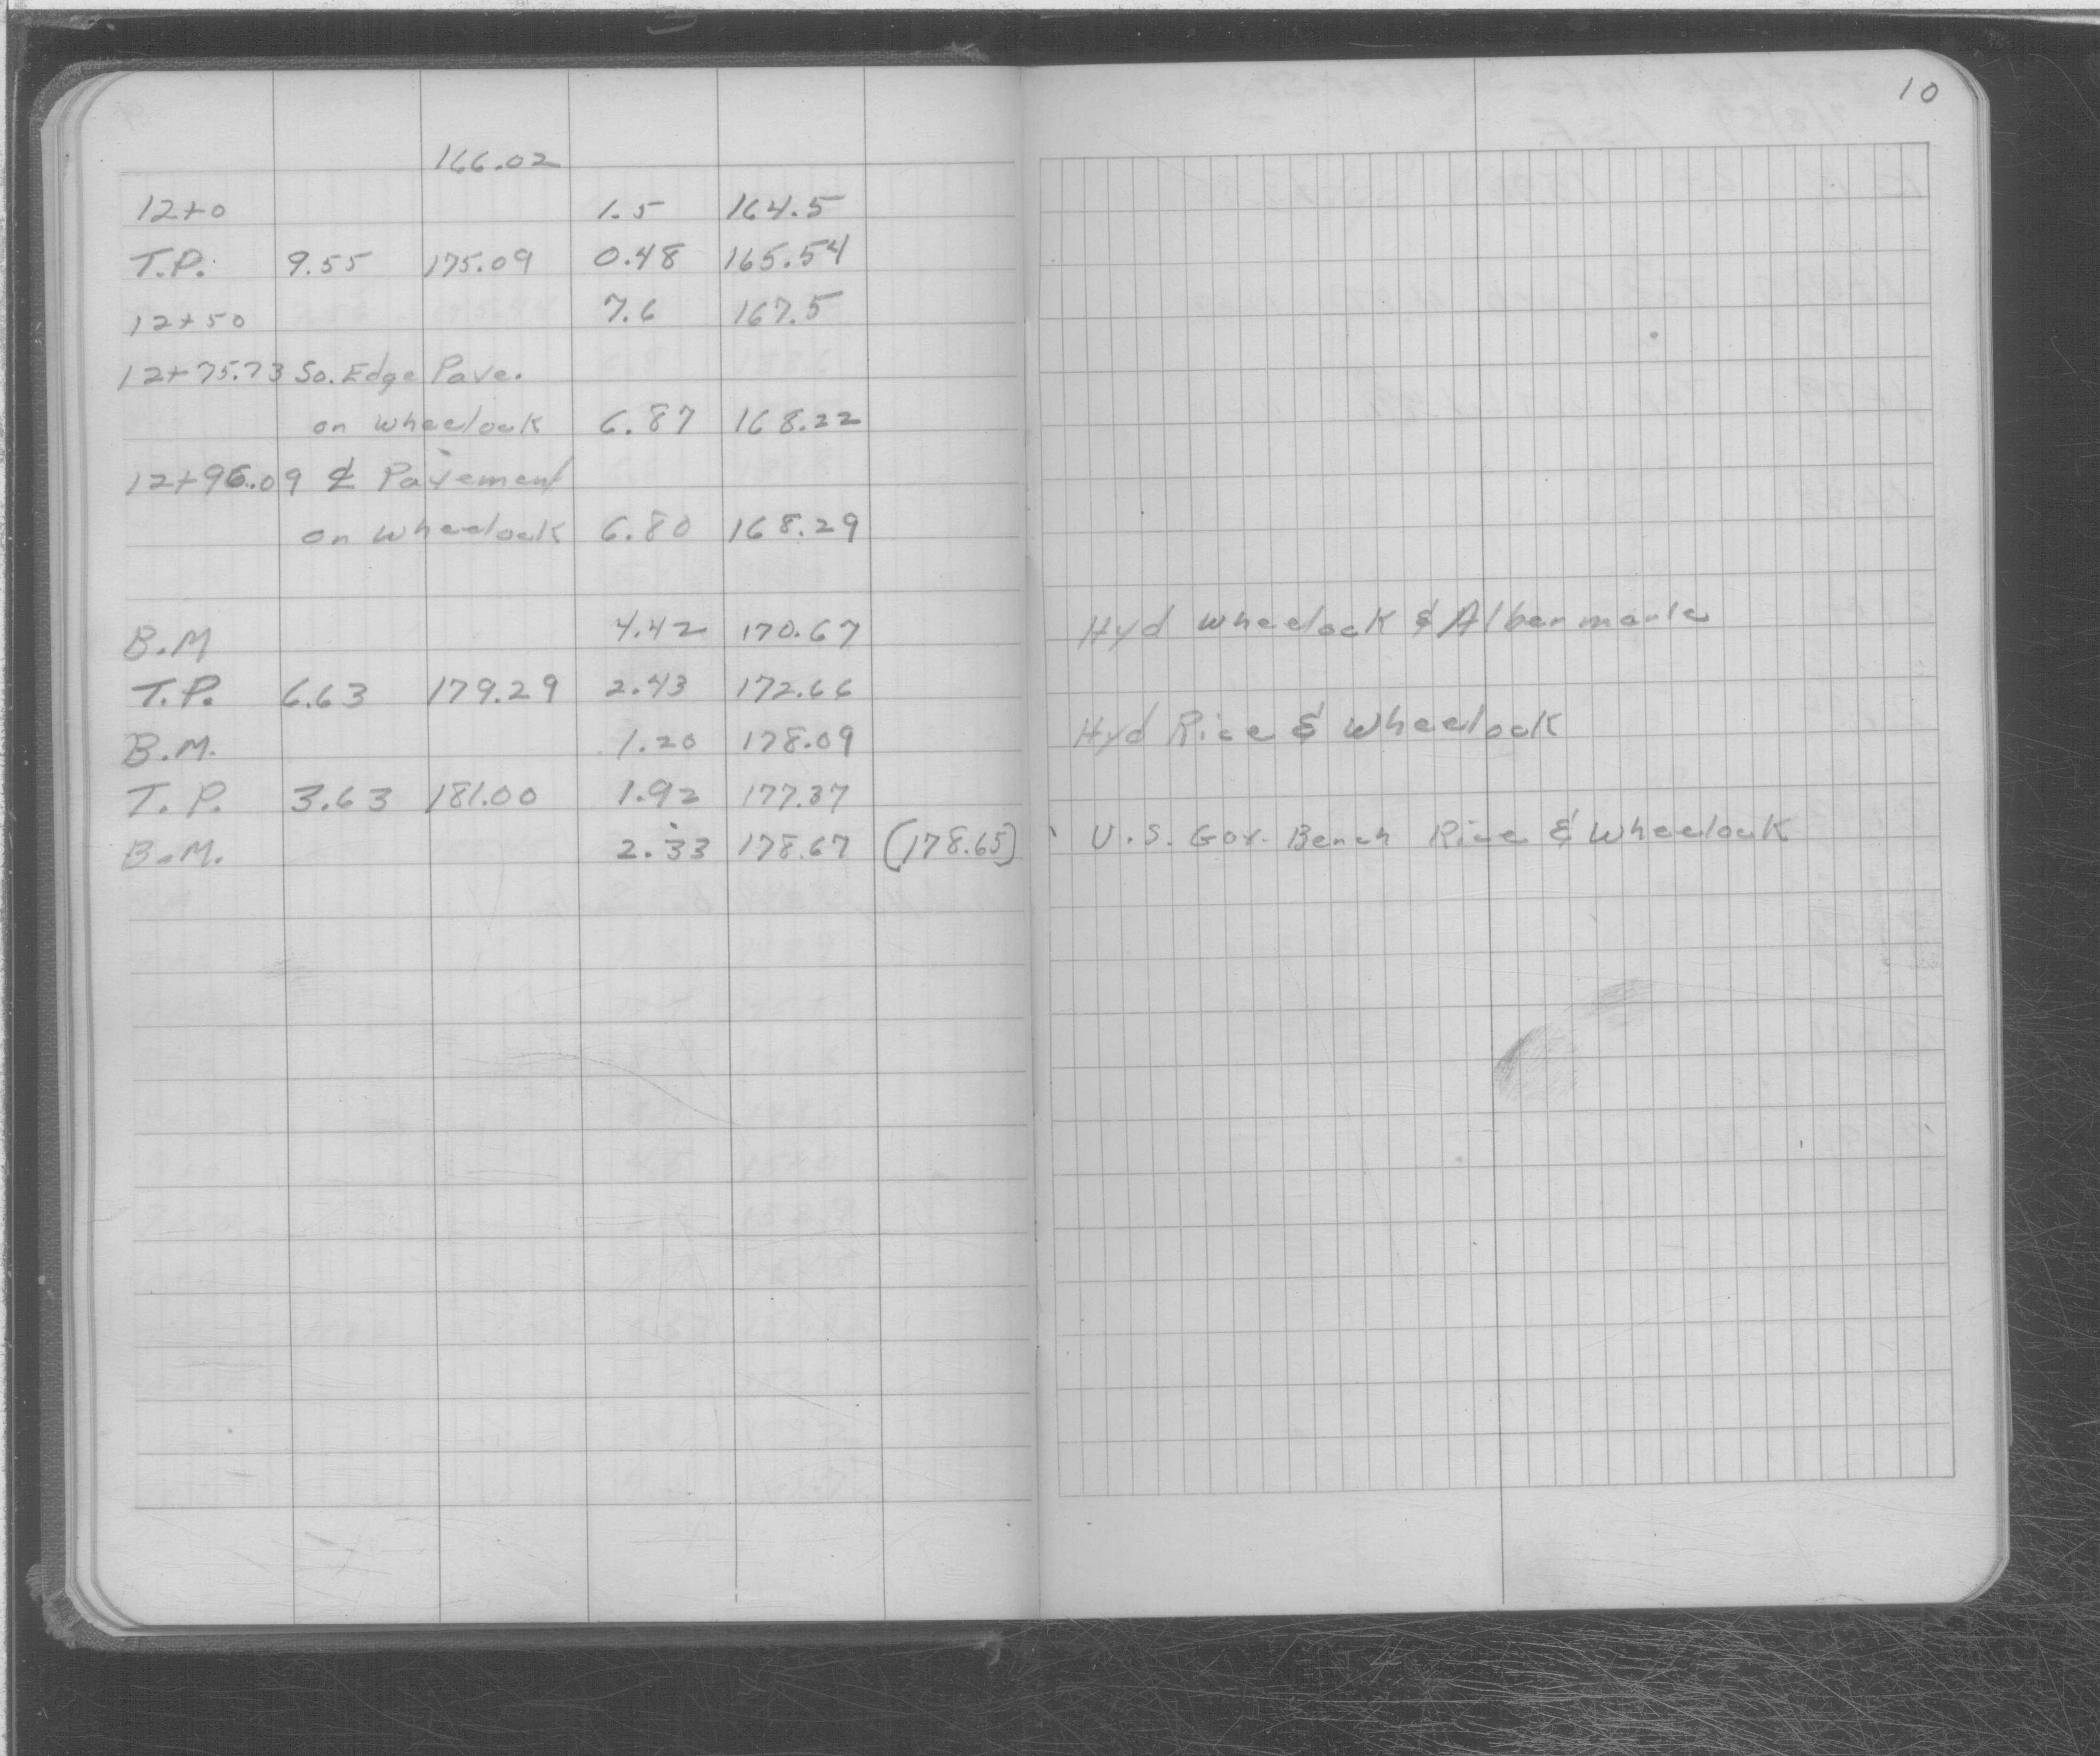 10
166.02
12+0 1.5 164.5
T.P. 9.55 175.09 0.48 165.54
12+50 7.6 167.5
12+75.73 So. Edge Pave.
on Wheelock 6.87 168.22
12+96.09 ℄ Pavement
on Wheelock 6.80 168.29
B.M 4.42 170.67 Hyd Wheelock & Albermarle
T.P. 6.63 179.29 2.43 172.66
B.M. 1.20 178.09 Hyd Rice & Wheelock
T.P. 3.63 181.00 1.92 177.37
B.M. 2.33 178.67 (178.65) U.S. Gov. Bench Rice & Wheelock